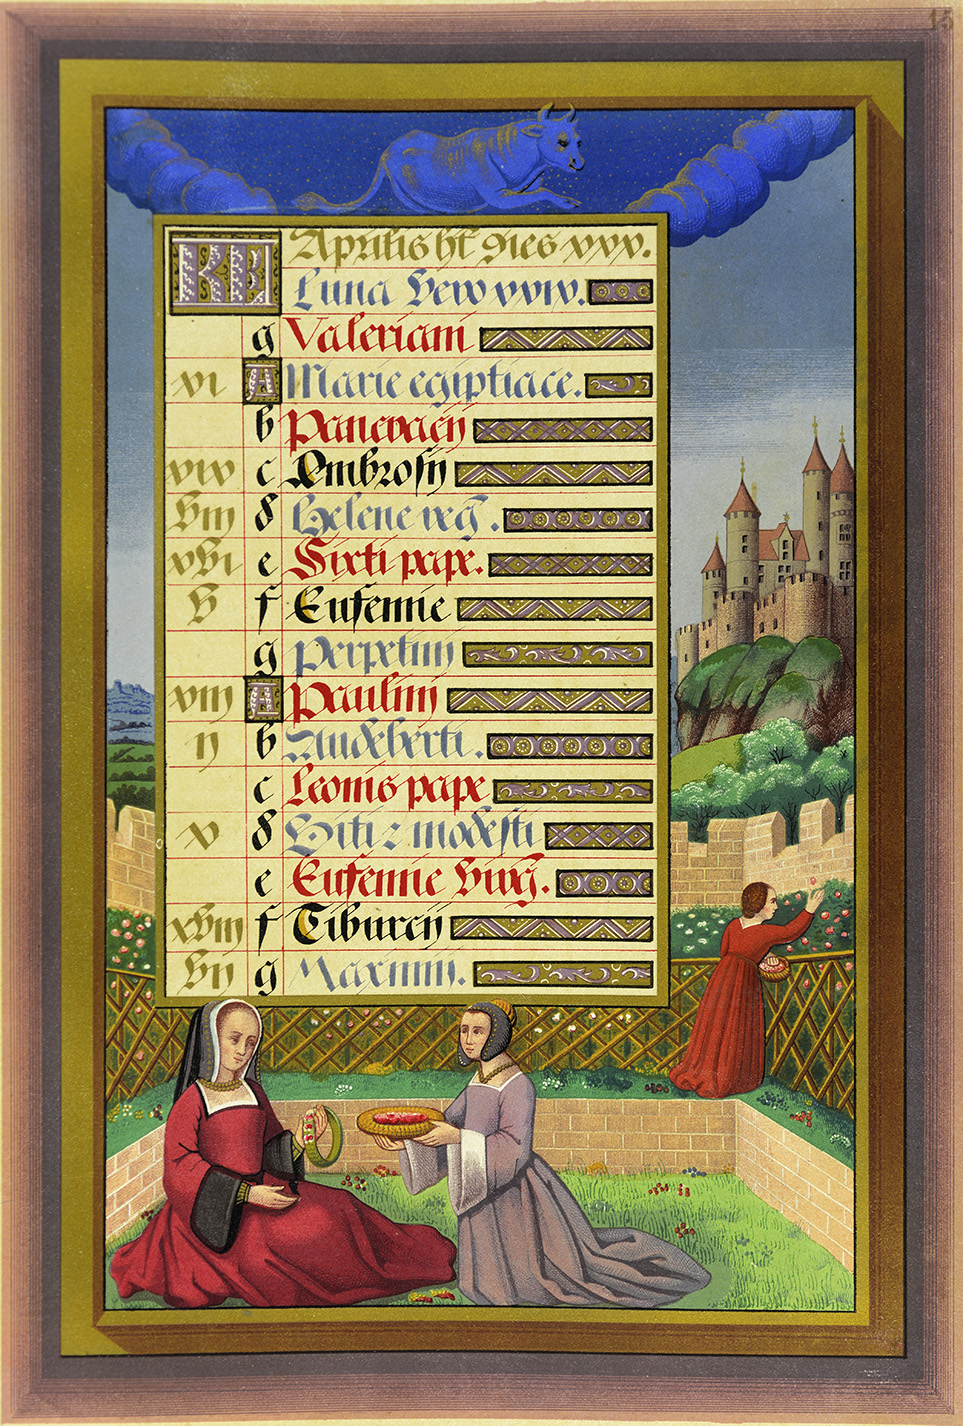 KL Aprilis ht dies xxx.
Luna vero xxix.
g Valeriani
xi A Marie egiptiace.
b Pancracij
xix c Ambrosij
viij d Helene reg.
xvi e Sixti pape.
v f Eufemie
g Perpetuu
xiij A Paulini
ij b Audeberti.
c Leonis pape
x d Viti z modesti
e Eufemie virg.
xviij f Tiburcij
vij g Maximi.